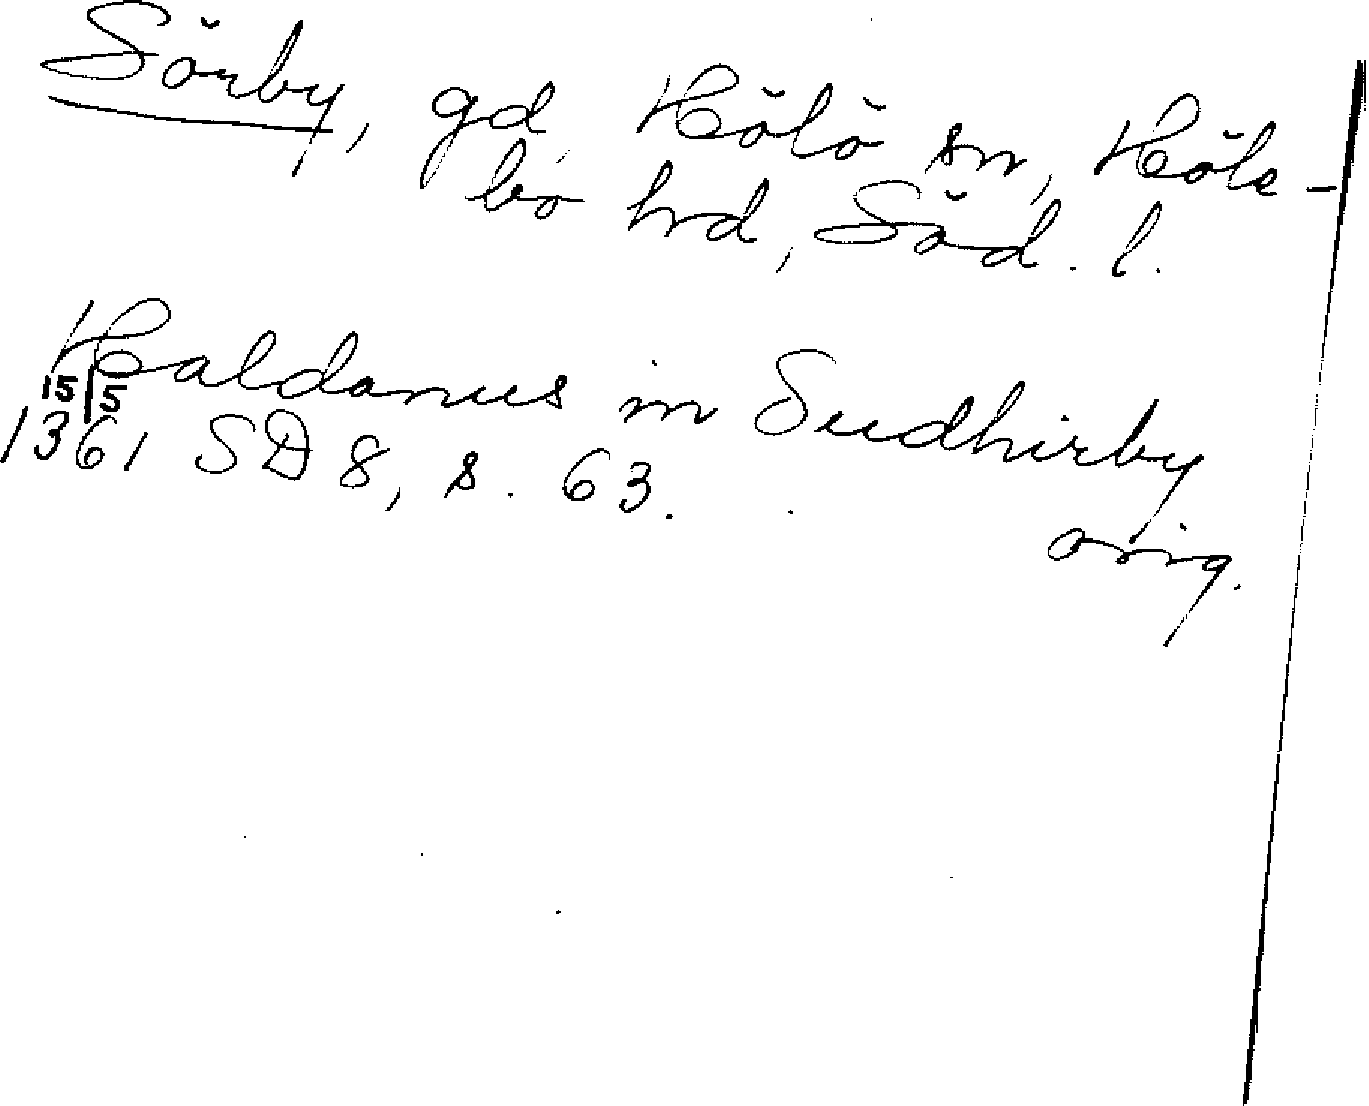 Sörby, gd, Hölö sn, Höle-
bo hrd, Söd. l.
Haldanus in Sudhirby
15/5 1361 SD 8, s. 63.
orig.